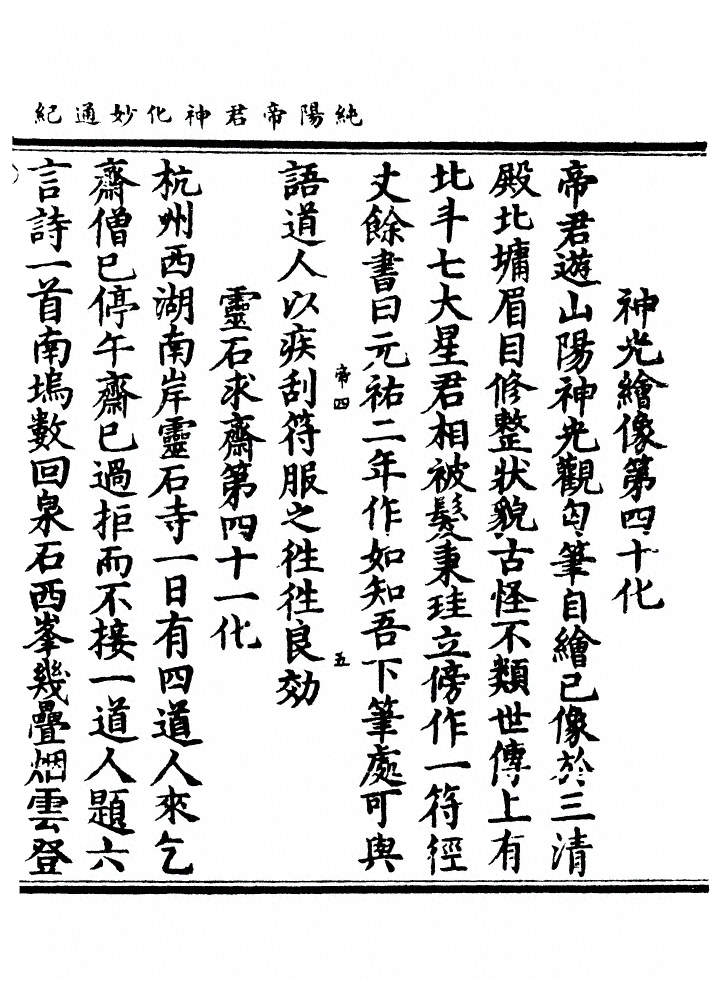 純陽帝君神化妙通紀
神光繪像第四十化
帝君遊山陽神光觀匄筆自繪已像於三清
殿北墉眉目修整狀貌古怪不類世傳上有
北斗七大星君相被髮秉珪立傍作一符經
丈餘書曰元祐二年作如知吾下筆處可與
帝四
五
語道人以疾刮符服之徃徃良効
靈石求齋第四十一化
杭州西湖南岸靈石寺一日有四道人來乞
齋僧巳停午齋巳過拒而不接一道人題六
言詩一首南塢數回泉石西峯幾疊烟雲登